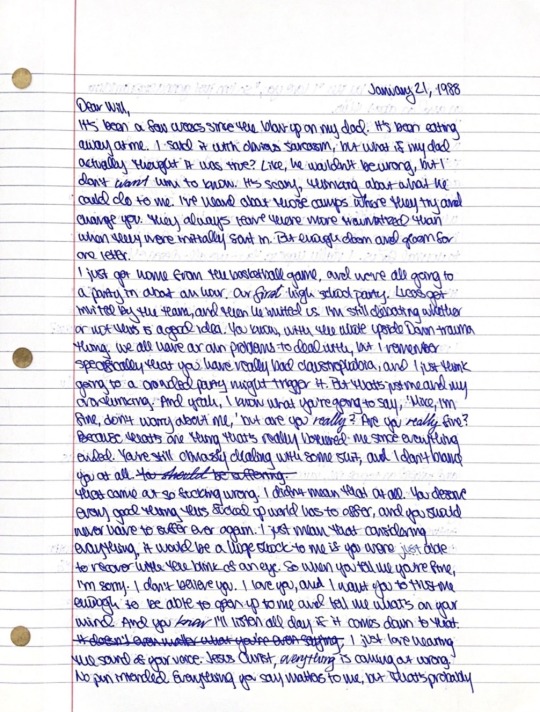 January 21, 1988
Dear Will,
It's been a few weeks since the blow up on my dad. It's been eating
away at me. I said it with obvious sarcasm, but what if my dad
actually thought it was true? Like, he wouldn't be wrong, but I
don't want him to know. It's scary, thinking about what he
could do to me. I've heard about those camps where they try and
change you. They always leave there more traumatized than
when they were initially sent in. But enough doom and gloom for
one letter.
I just got home from the basketball game, and we're all going to
a party in about an hour. Our first high school party. Lucas got
invited by the team, and then he invited us. I'm still debating whether
or not this is a good idea. You know, with the whole Upside Down trauma
thing. We all have our own problems to deal with, but I remember
specifically that you have really bad claustrophobia, and I just think
going to a crowded party might trigger it. But that's just me and my
overthinking. And yeah, I know what you're going to say, 'Mike, I'm
fine, don't worry about me,' but are you really? Are you really fine?
Because that's one thing that's really bothered me since everything
ended. You're still obviously dealing with some shit, and I don't blame
you at all. You should be suffering
That came out so fucking wrong. I didn't mean that at all. You deserve
every good thing this fucked up world has to offer, and you should
never have to suffer ever again. I just mean that considering
everything, it would be a huge shock to me if you were just able
to recover with the blink of an eye. So when you tell me you're fine,
I'm sorry. I don't believe you. I love you, and I want you to trust me
enough to be able to open up to me and tell me what's on your
mind. And you know I'll listen all day if it comes down to that.
It doesn't even matter what you're even saying, I just love hearing
the sound of your voice. Jesus Christ, everything is coming out wrong.
No pun intended. Everything you say matters to me, but that's probably